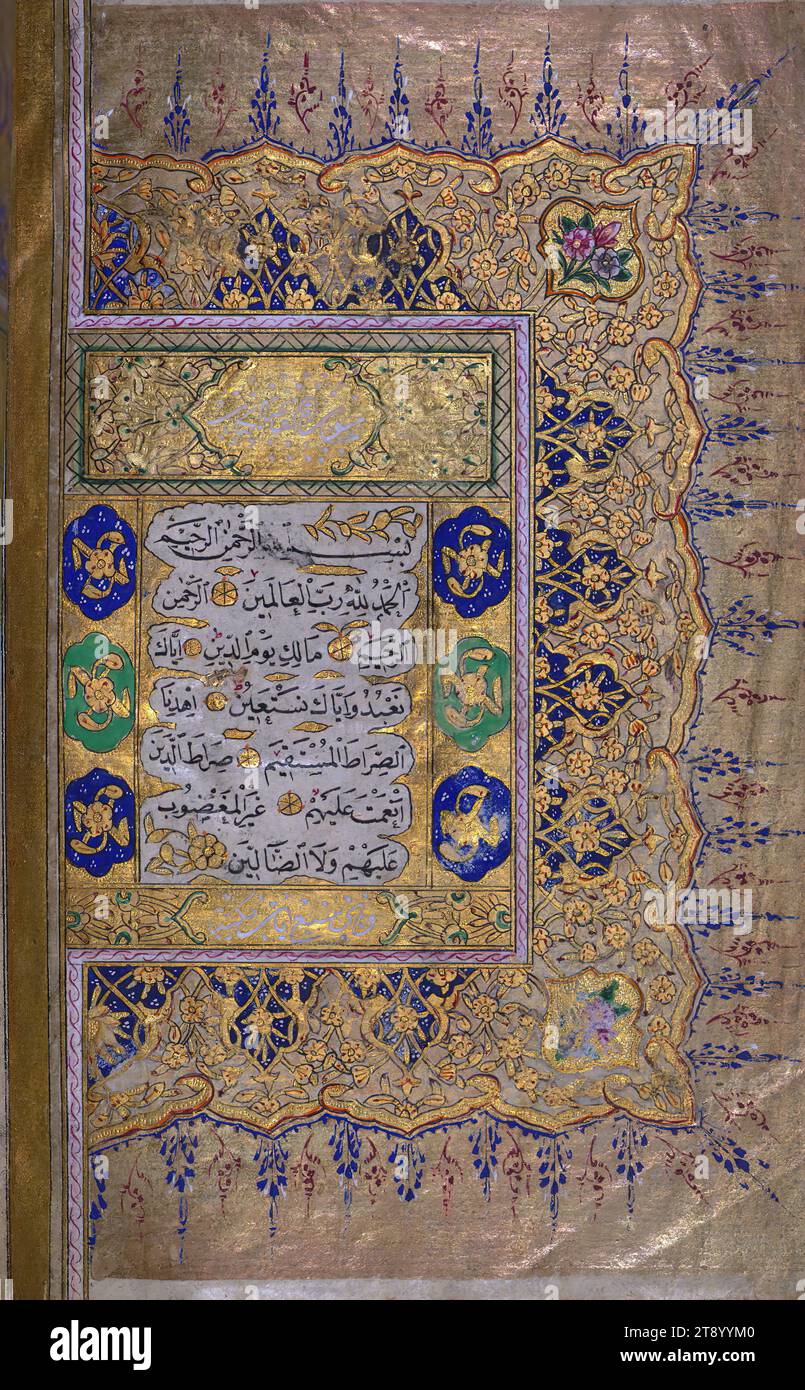 بِسْمِ اللهِ الرَّحْمٰنِ الرَّحِيمِ
اَلْحَمْدُ لِلّٰهِ رَبِّ الْعَالَمِينَ الرَّحْمٰنِ
الرَّحِيمِ مَالِكِ يَوْمِ الدِّينِ اِيَّاكَ
نَعْبُدُ وَاِيَّاكَ نَسْتَعِينُ اِهْدِنَا
الصِّرَاطَ الْمُسْتَقِيمَ صِرَاطَ الَّذِينَ
اَنْعَمْتَ عَلَيْهِمْ غَيْرِ الْمَغْضُوبِ
عَلَيْهِمْ وَلَا الضَّالِّينَ
alamy
Image ID: 2T8YYM0
www.alamy.com